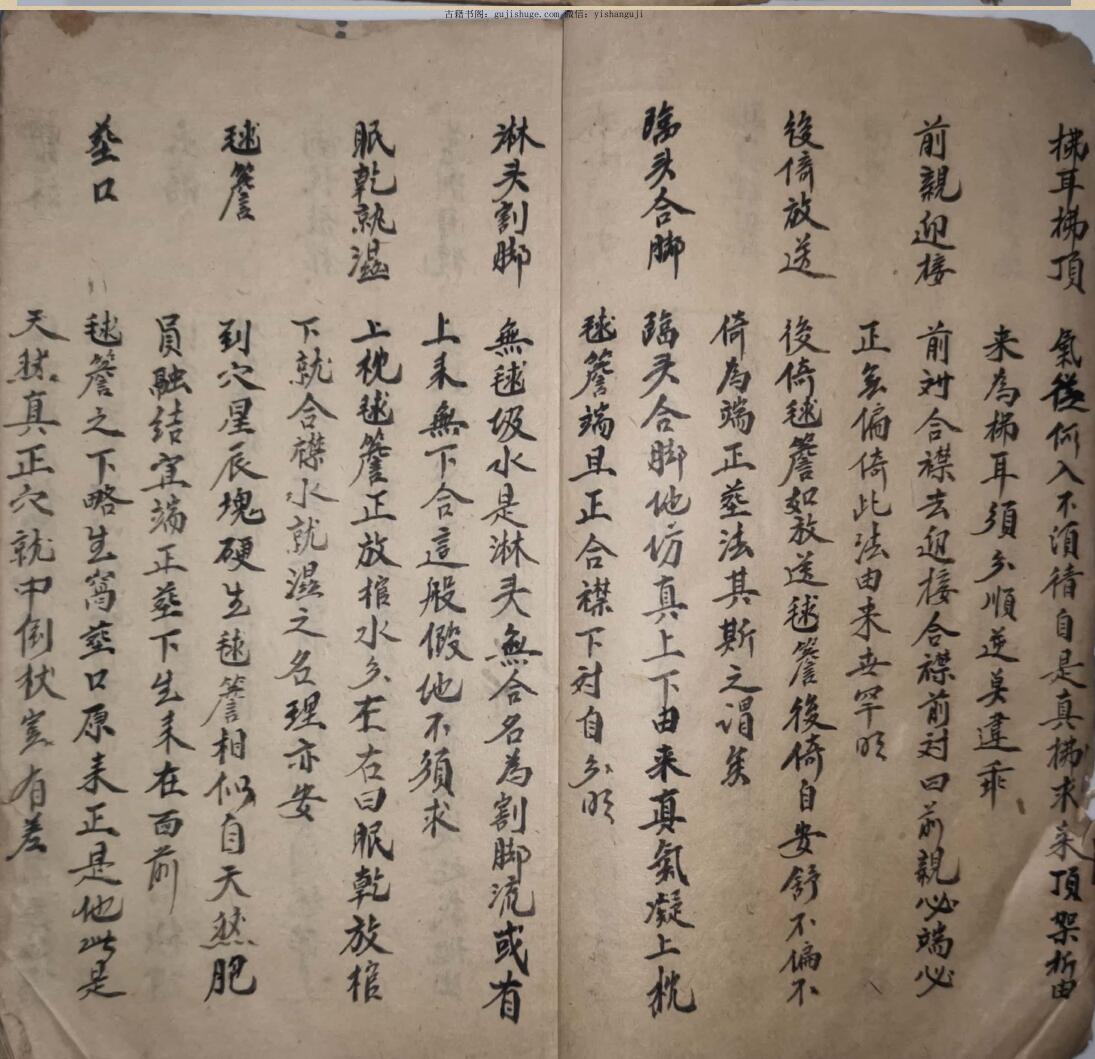 古籍书阁：gujishuge.com 微信：yishanguji
拂耳拂頂 氣從何入不須猜自是真拂求来頂架折由
来為拂耳須分順逆莫違乖
前親迎接 前対合襟去迎接合襟前対曰前親必端必
正無偏倚此法由来世罕明
後倚放送 後倚毬簷如放送毬簷後倚自安舒不偏不
倚為端正塟法其斯之谓矣
臨头合脚 臨头合脚他仿真上下由来真氣凝上枕
毬簷端且正合襟下対自分明
淋头割脚 無毬圾水是淋头無合名為割脚流或有
上来無下合這般假他不須求
眠乾就濕 上枕毬簷正放棺水分左右曰眠乾放棺
下就合襟水就濕之名理亦安
毬簷 到穴星辰塊硬生毬簷相似自天然肥
員融結宜端正塟下生来在面前
塟口 毬簷之下略生窩塟口原来正是他此是
天然真正穴就中倒杖豈有差